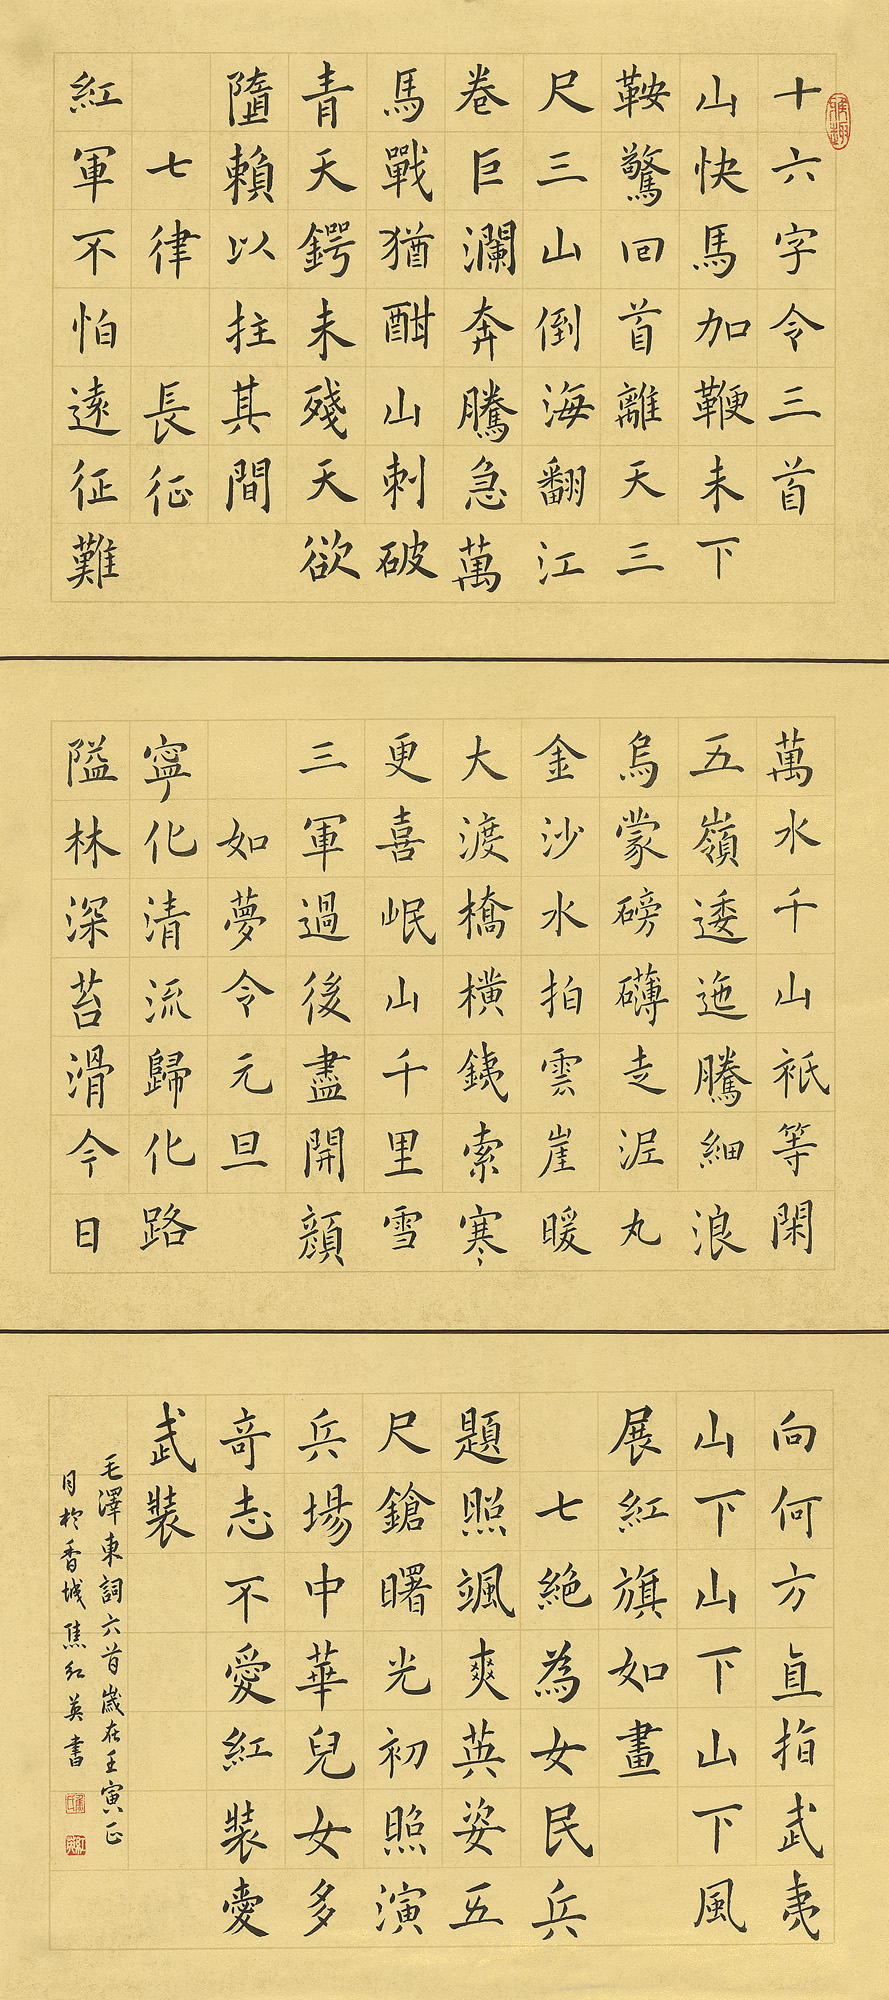 雅趣
十六字令三首
山快馬加鞭未下
鞍驚回首離天三
尺三山倒海翻江
卷巨瀾奔騰急萬
馬戰猶酣山刺破
青天鍔未殘天欲
墮賴以拄其間
七律 長征
紅軍不怕遠征難
萬水千山衹等閑
五嶺逶迤騰細浪
烏蒙磅礴走泥丸
金沙水拍雲崖暖
大渡橋橫銕索寒
更喜岷山千里雪
三軍過後盡開顏
如夢令元旦
寧化清流歸化路
隘林深苔滑今日
向何方直指武夷
山下山下山下風
展紅旗如畫
七絕為女民兵
題照颯爽英姿五
尺鎗曙光初照演
兵場中華兒女多
奇志不愛紅裝愛
武裝
毛澤東詞六首歲在壬寅正
月於香城焦紅英書